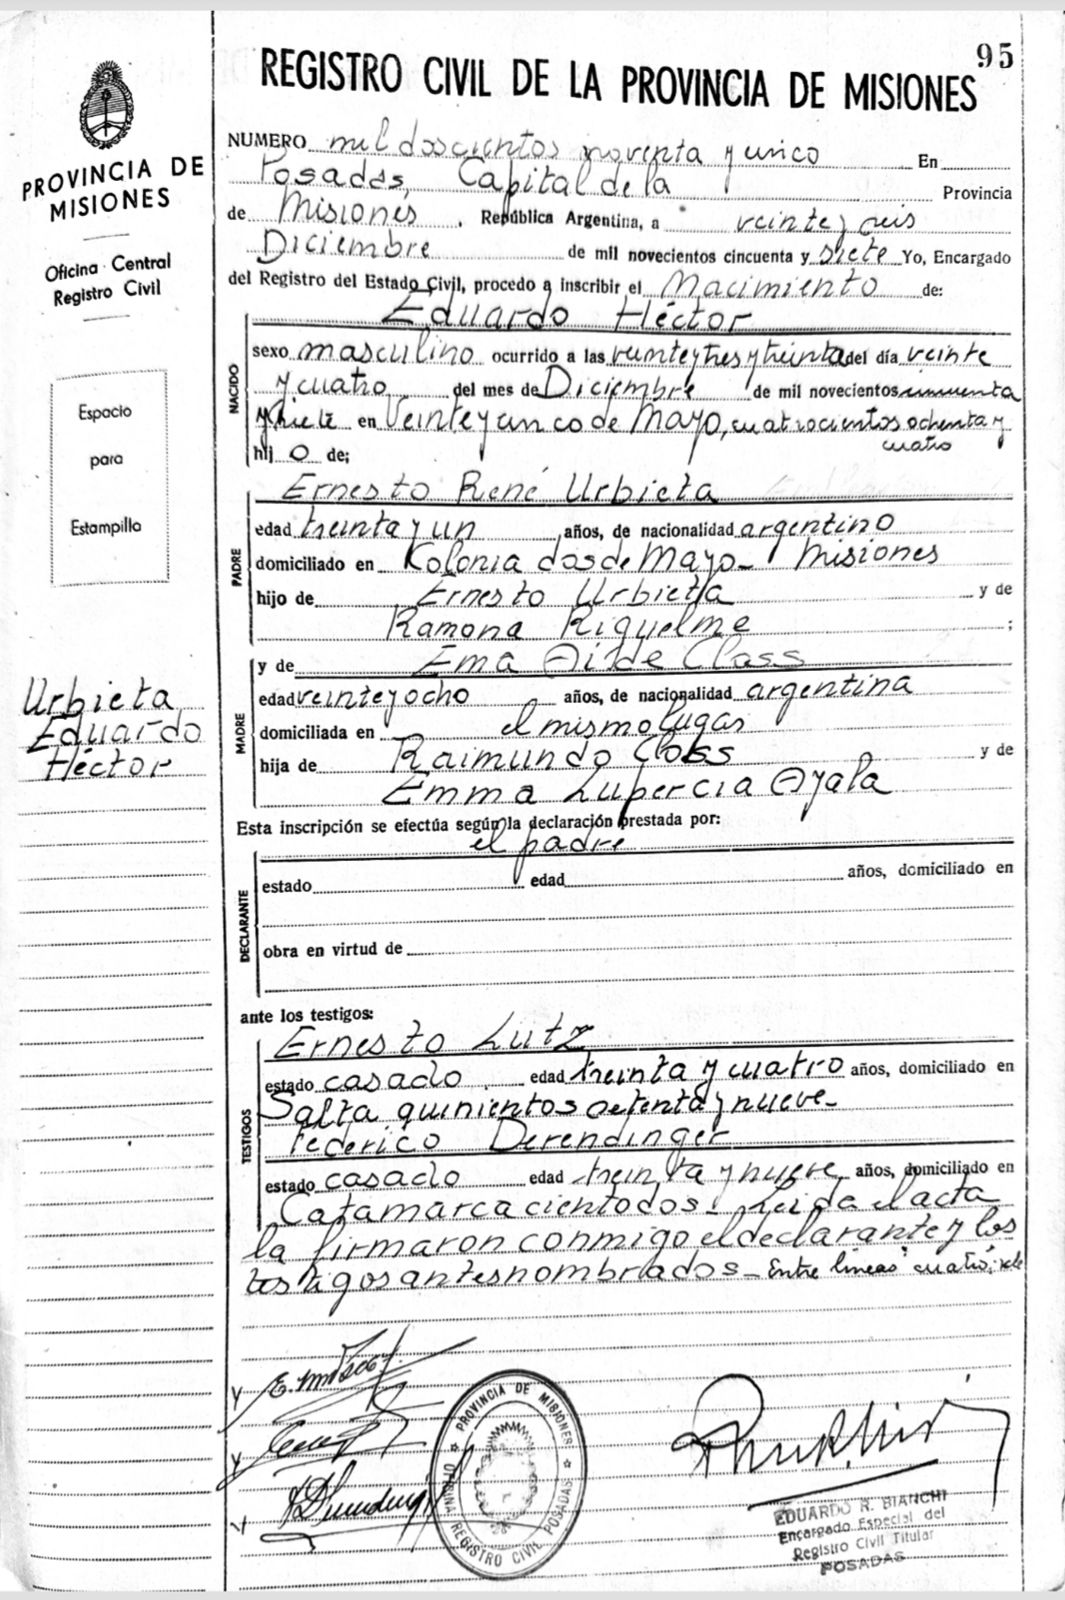 95
REGISTRO CIVIL DE LA PROVINCIA DE MISIONES
PROVINCIA DE
MISIONES
Oficina Central
Registro Civil
Espacio
para
Estampilla
Urbieta
Eduardo
Héctor
NUMERO mil doscientos noventa y unico En
Posadas, Capital de la Provincia
de Misiones, República Argentina, a veinte y seis
Diciembre de mil novecientos cincuenta y siete Yo, Encargado
del Registro del Estado Civil, procedo a inscribir el Nacimiento de:
Eduardo Héctor
NACIDO
sexo masculino ocurrido a las veinte y tres y treinta del día veinte
y cuatro del mes de Diciembre de mil novecientos cincuenta
y siete en Veinte y cinco de Mayo, cuatrocientos ochenta y
cuatro
hij o de;
PADRE
Ernesto René Urbieta
edad treinta y un años, de nacionalidad argentino
domiciliado en Kolonia dos de Mayo - Misiones
hijo de Ernesto Urbieta y de
Ramona Riquelme ;
MADRE
y de Ema Closs
edad veinte y ocho años, de nacionalidad argentina
domiciliada en el mismo lugar
hija de Raimundo Closs y de
Emma Lupercia Ayala
Esta inscripción se efectúa según la declaración prestada por:
el padre
DECLARANTE
estado edad años, domiciliado en
obra en virtud de
ante los testigos:
TESTIGOS
Ernesto Lutz
estado casado edad treinta y cuatro años, domiciliado en
Salta quinientos setenta y nueve -
Federico Derendinger
estado casado edad treinta y nueve años, domiciliado en
Catamarca ciento dos - Leida el acta
la firmaron conmigo el declarante y los
testigos antes nombrados - Entre lineas "cuatro"; vale
PROVINCIA DE MISIONES
OFICINA REGISTRO CIVIL POSADAS
EDUARDO R. BIANCHI
Encargado Especial del
Registro Civil Titular
POSADAS